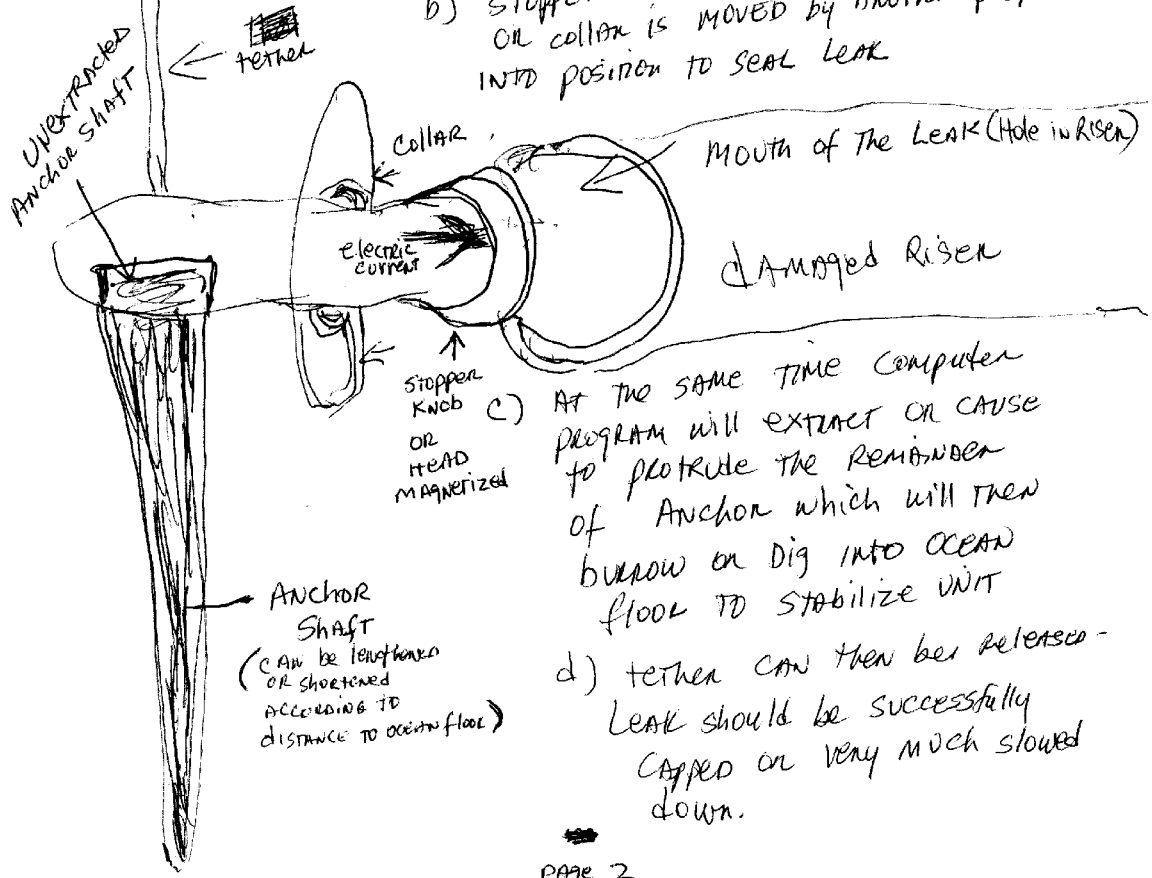 b) Stoppe
or collar is moved by another
into position to seal leak
tether
Unextracted
Anchor shaft
Collar
Mouth of the Leak (Hole in Riser)
electric
current
damaged Riser
Stopper
Knob
or
Head
magnetized
c) At the same time computer
program will extract or cause
to protrude the remainder
of Anchor which will then
burrow or dig into ocean
floor to stabilize unit
Anchor
Shaft
(can be lengthened
or shortened
according to
distance to ocean floor)
d) tether can then ber released-
Leak should be successfully
capped or very much slowed
down.
page 2